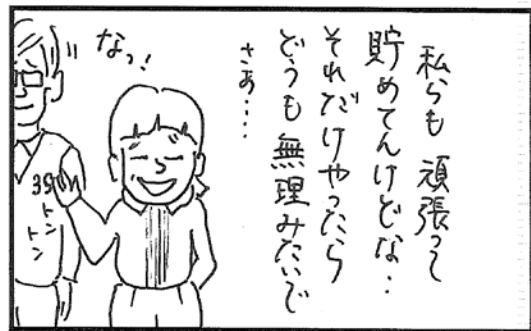 私らも 頑張って
貯めてんけどな‥
それだけやったら
どうも無理みたいで
さあ‥‥
なっ!
トン
トン